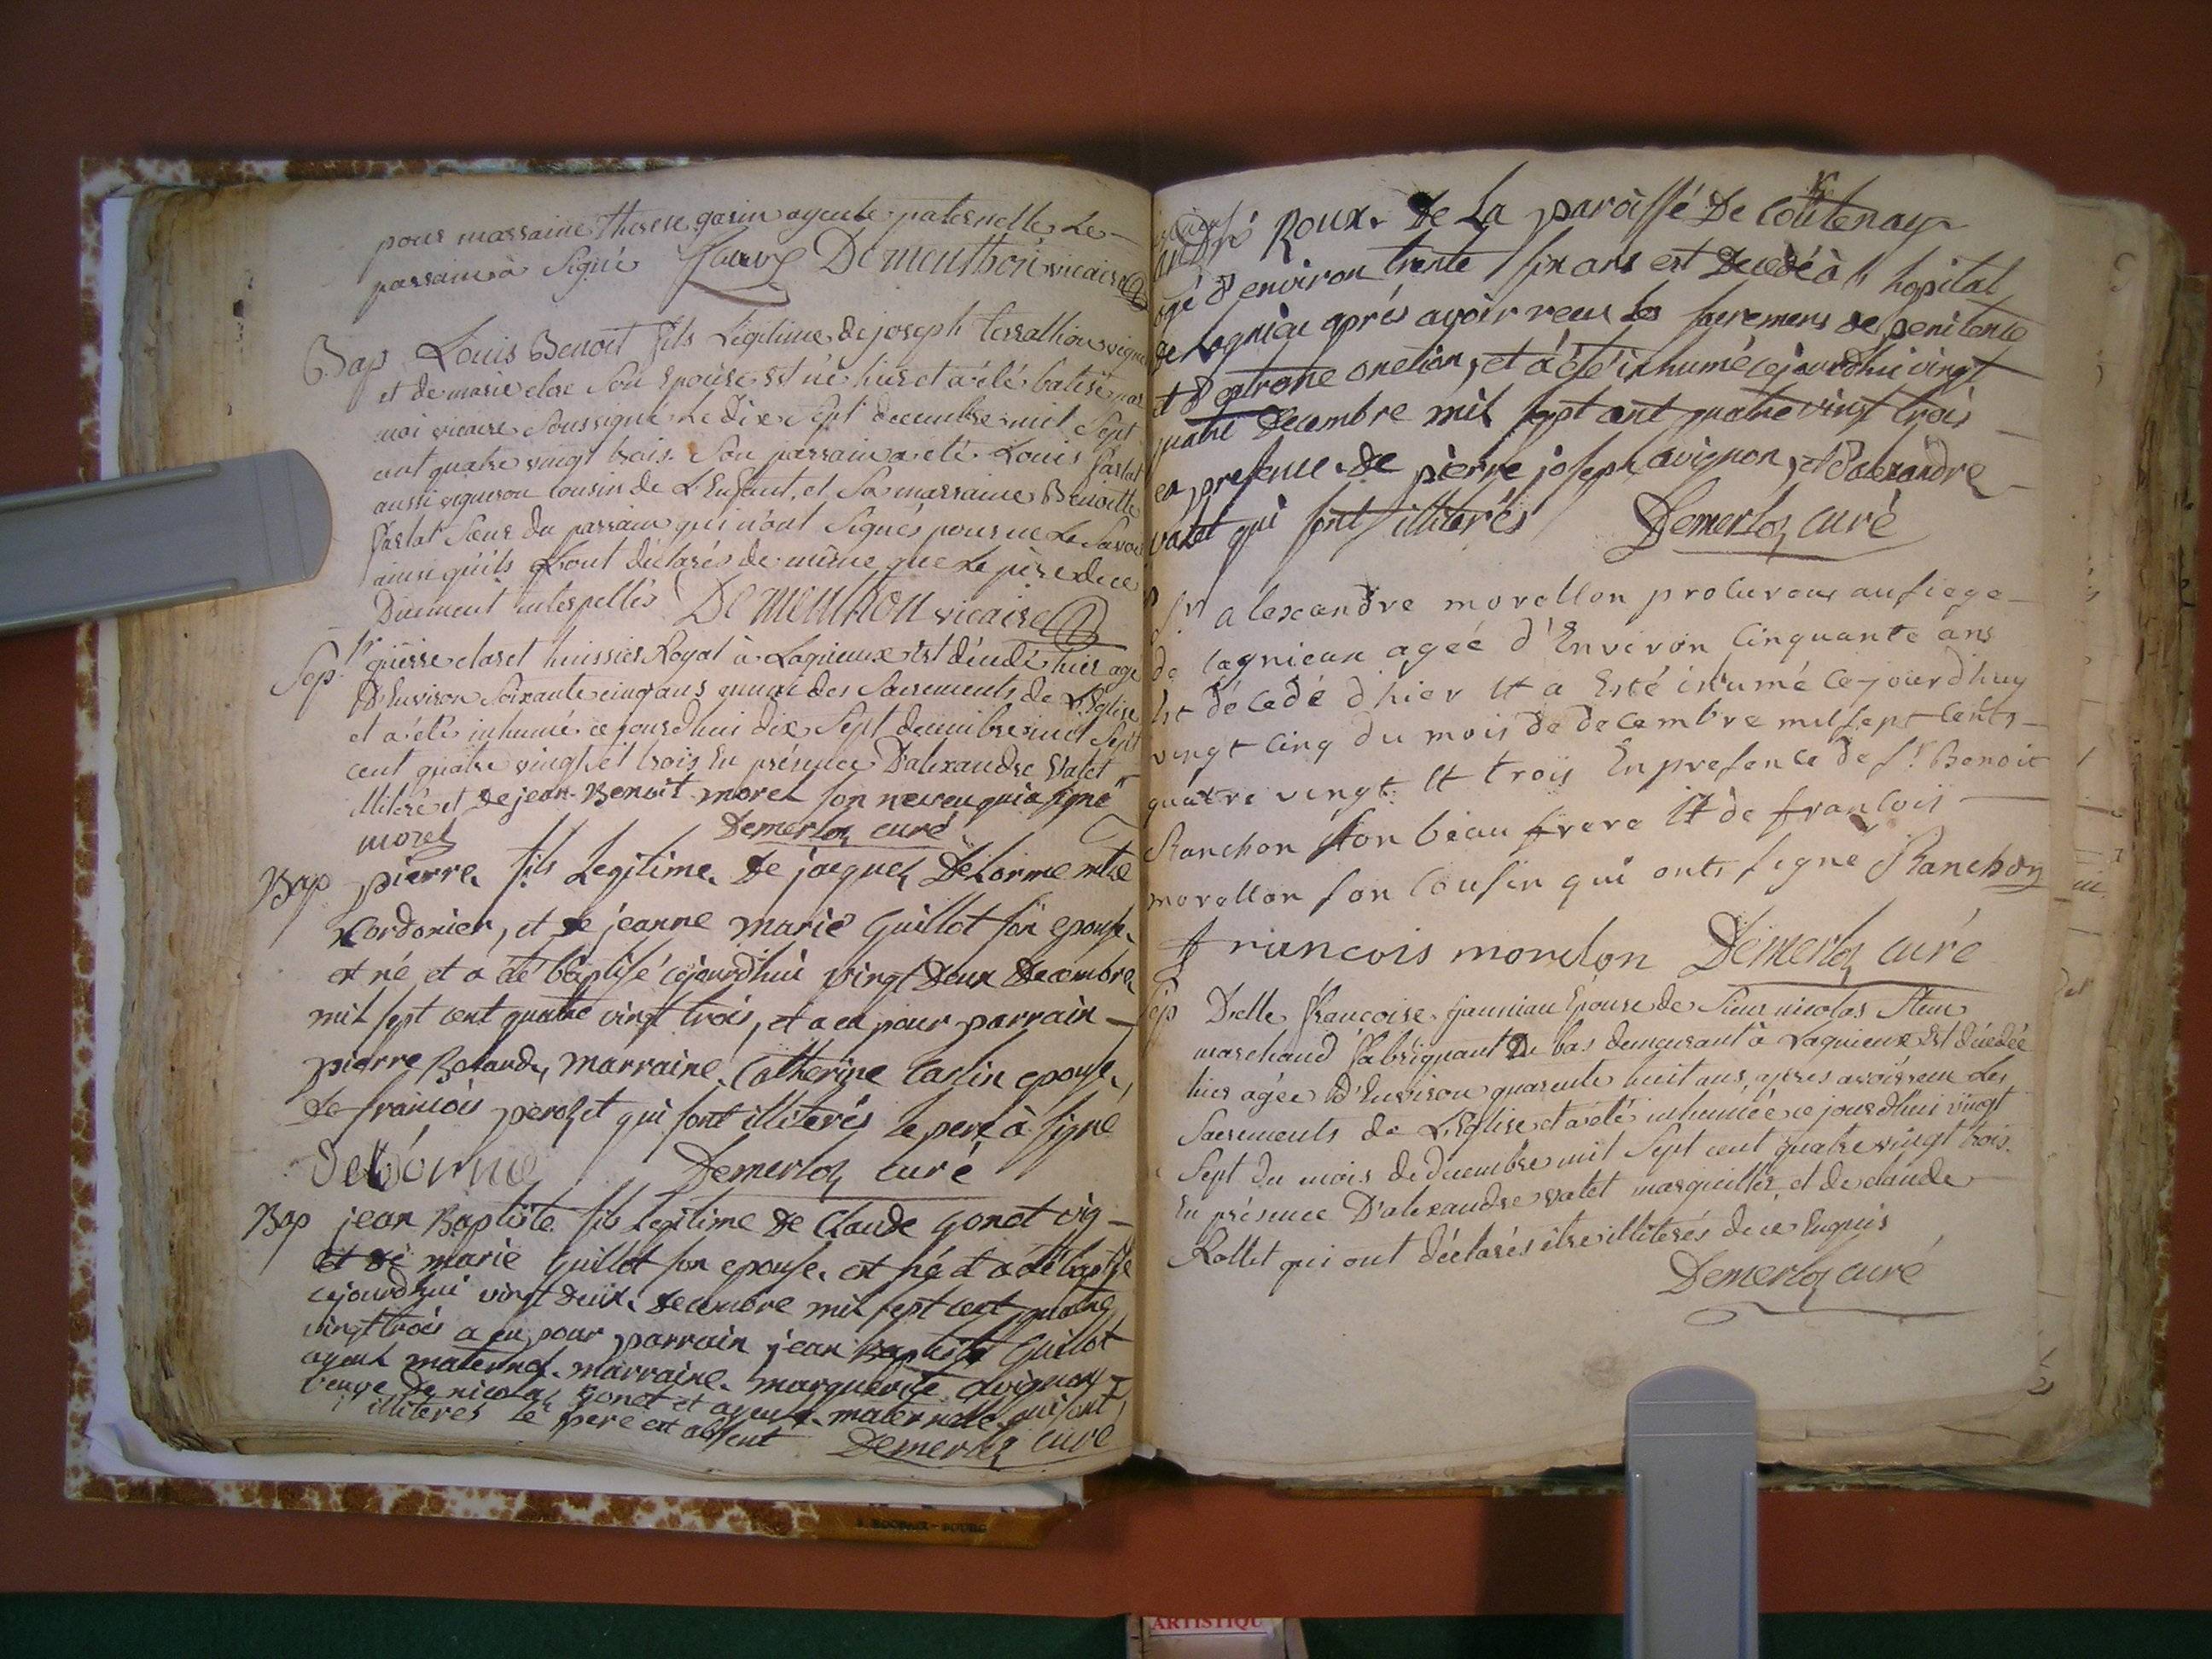 pour marraine therese garin ayeule paternelle Le
parrain à Signé Dementhon vicaire
Bap Louis Benoit fils Légitime de joseph vigne
et de marie clere Son Epouse est né hier et a été batisé par
moi vicaire Soussigné Le Dix Sept decembre mil Sept
cent quatre vingt trois. Son parrain a été Louis farlat
aussi vigneron cousin de L'Enfant, et Sa marraine Benoitte
farlat Soeur du parrain qui n'ont Signés pour ne Le Savoir
ainsi qu'ils L'ont déclarés de même que Le père de ce
Duement interpellés Dementhon vicaire
Sep. Sr pierre claret huissier Royal à Lagnieux Est décédé hier agé
D'Environ Soixante cinq ans muni des Sacrements de L'Eglise
et a été inhumé ce jourd'hui dix Sept decembre mil Sept
cent quatre vingt et trois En présence D'alexandre Valet
illiteré et de jean Benoit morel son neveu qui a signé
morel Demerloz curé
Bap pierre fils Legitime de jacques Delorme mtre
Cordonier, et de jeanne marie Guillot son epouse
est né et a été baptisé cejourdhui vingt deux decembre
mil sept cent quatre vingt trois, et a eu pour parrain
pierre marraine Catherine Carlin epouse
de francois perozet qui sont illiterés le pere à signé
Delorme Demerloz curé
Bap jean Baptiste fils legitime de Claude Gonet vig
et de marie Guillot son epouse est né et a été baptisé
cejourdhui vingt deux decembre mil sept cent quatre
vingt trois a eu pour parrain jean Baptiste Guillot
ayeul maternel marraine marguerite avignon
veuve de nicolas Gonet et ayeule maternelle qui sont
illiterés le pere est absent Demerloz curé
andré Roux de La paroisse de Coutenay
agé d'environ trente six ans est decedé à l'hopital
de Lagnieu aprés avoir receu les sacremens de penitence
et d'extrome onction, et a été inhumé cejourdhui vingt
quatre decembre mil sept cent quatre vingt trois
en presence de pierre joseph avignon, et d'alexandre
valet qui sont illiterés Demerloz curé
Sr alexandre morellon procureur au siege
de lagnieux ageé d'Environ Cinquante ans
Est décedé d'hier Et a Esté inumé Cejourdhuy
vingt cinq du mois de decembre mil sept Cents
quatre vingt Et trois En presence de Sr Benoit
Ranchon son beau frere Et de francois
morellon son Cousin qui onts signe Ranchon
francois morelon Demerloz curé
Sep Dlle françoise janniau Epouse de Sieur nicolas
marchand fabriquant De bas demeurant à Lagnieux Est décédée
hier agée D'Environ quarente huit ans, apres avoir reçu Les
Sacrements de L'Eglise et a été inhumée ce jourd'hui vingt
Sept du mois de decembre mil Sept cent quatre vingt trois
En présence D'alexandre valet marguillier et de claude
Rollet qui ont déclarés être illiterés de ce Enquis
Demerloz curé
ARTISTIQU